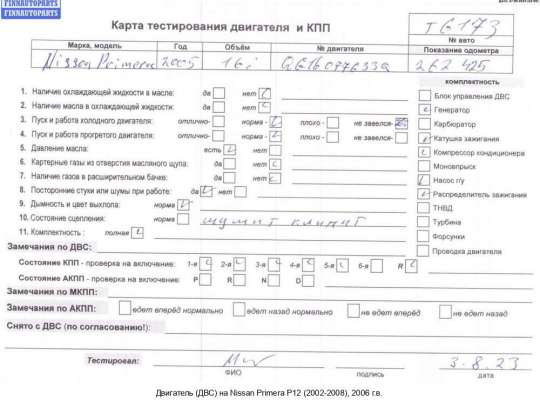 FINNAUTOPARTS
FINNAUTOPARTS
Карта тестирования двигателя и КПП
TG173
№ авто
Марка, модель Год Объём № двигателя Показание одометра
Nissan Primera 2005 16i 262 425
комплектность
1. Наличие охлаждающей жидкости в масле: да нет
2. Наличие масла в охлаждающей жидкости: да нет
3. Пуск и работа холодного двигателя: отлично- норма - плохо- не завелся-
4. Пуск и работа прогретого двигателя: отлично- норма - плохо - не завелся-
5. Давление масла: есть нет
6. Картерные газы из отверстия масляного щупа: да нет
7. Наличие газов в расширительном бачке: да нет
8. Посторонние стуки или шумы при работе: да нет
9. Дымность и цвет выхлопа: норма
10. Состояние сцепления: норма шумит клинит
11. Комплектность : полная
Блок управления ДВС
Генератор
Карбюратор
Катушка зажигания
Компрессор кондиционера
Моновпрыск
Насос г/у
Распределитель зажигания
ТНВД
Турбина
Форсунки
Проводка двигателя
Замечания по ДВС:
Состояние КПП - проверка на включение: 1-я 2-я 3-я 4-я 5-я 6-я R
Состояние АКПП - проверка на включение: P R N D
Замечания по МКПП:
Замечания по АКПП: едет вперед нормально едет назад нормально не едет вперёд не едет назад
Снято с ДВС (по согласованию!):
Тестировал: 3.8.23
ФИО подпись дата
Двигатель (ДВС) на Nissan Primera P12 (2002-2008), 2006 г.в.